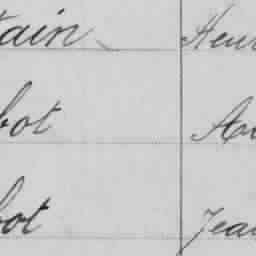 tain Henr
bot Au
bot Jean